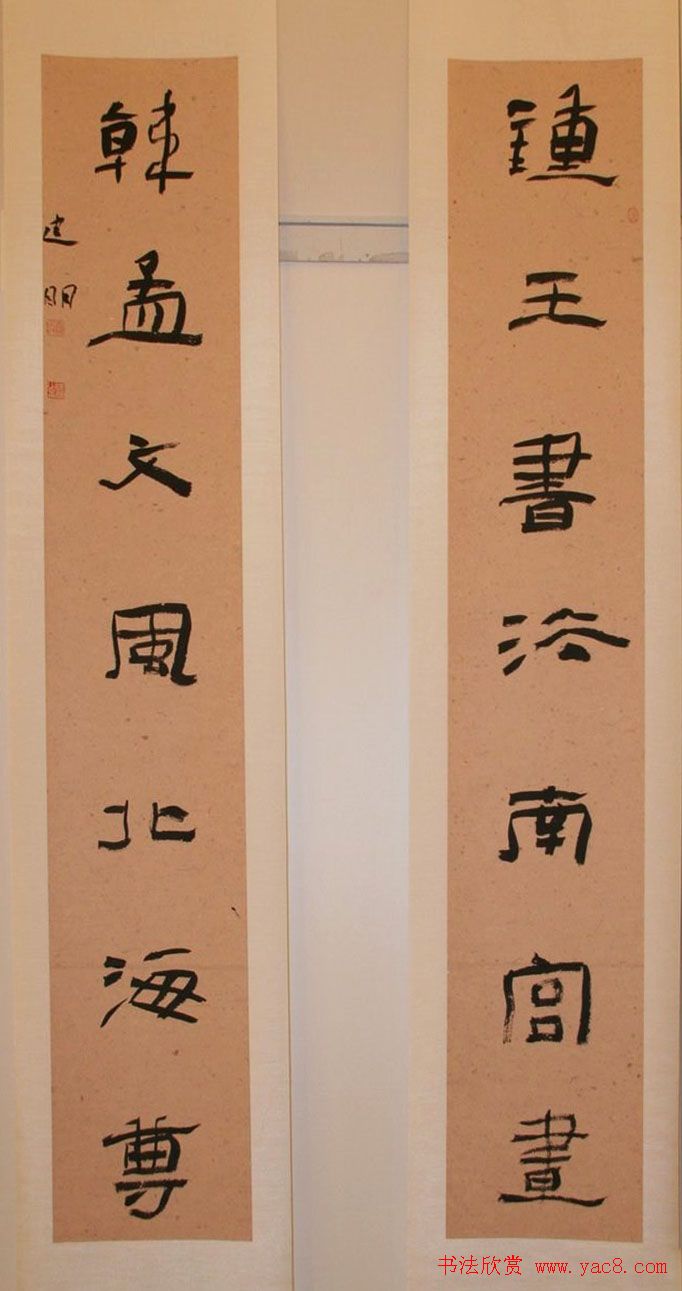 鍾王書法南宮畫
韓孟文風北海尊
建明
书法欣赏 www.yac8.com